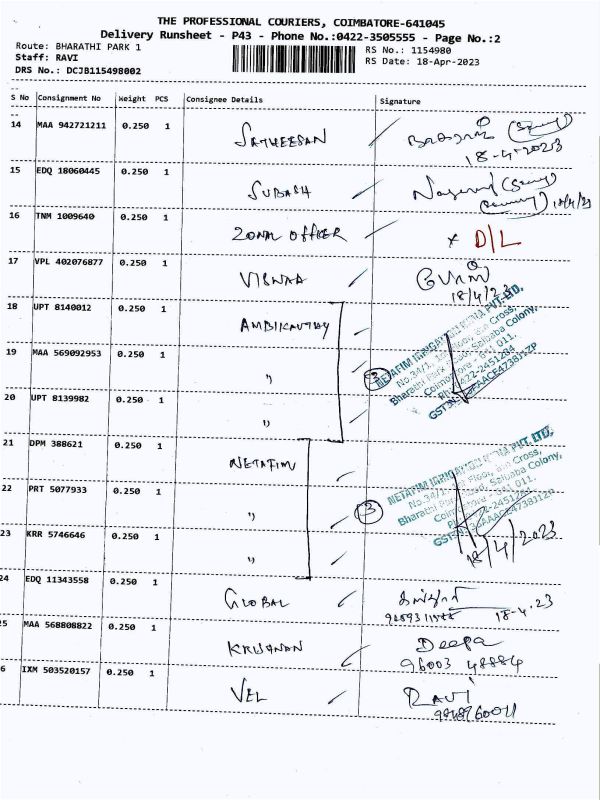 THE PROFESSIONAL COURIERS, COIMBATORE-641045
Delivery Runsheet - P43 - Phone No.:0422-3505555 - Page No.:2
Route: BHARATHI PARK 1
RS No.: 1154980
Staff: RAVI
RS Date: 18-Apr-2023
DRS No.: DCJB115498002
S No Consignment No Weight PCS Consignee Details Signature
14 MAA 942721211 0.250 1 SATHEESAN
18-4-2023
15 EDQ 18060445 0.250 1 SUBASH
18/4/23
16 TNM 1009640 0.250 1 ZONAL OFFICER x D/L
17 VPL 402076877 0.250 1 VISWAA
18/4/23
18 UPT 8140012 0.250 1
19 MAA 569092953 0.250 1 "
20 UPT 8139982 0.250 1 "
NETAFIM IRRIGATION INDIA PVT. LTD,
No.34/1, Floor, Cross,
Bharathi Park Road, Saibaba Colony,
Coimbatore - 641 011.
21 DPM 388621 0.250 1 NETAFIM
22 PRT 5077933 0.250 1 "
3
23 KRR 5746646 0.250 1 "
NETAFIM IRRIGATION INDIA PVT. LTD,
No.34/1, Floor, Cross,
Bharathi Park Road, Saibaba Colony,
Coimbatore - 641 011.
18/4/2023
24 EDQ 11343558 0.250 1 GLOBAL
18-4-23
25 MAA 568808822 0.250 1 KRISHNAN Deepa
96003 48884
6 IXM 503520157 0.250 1 VEL RAVI